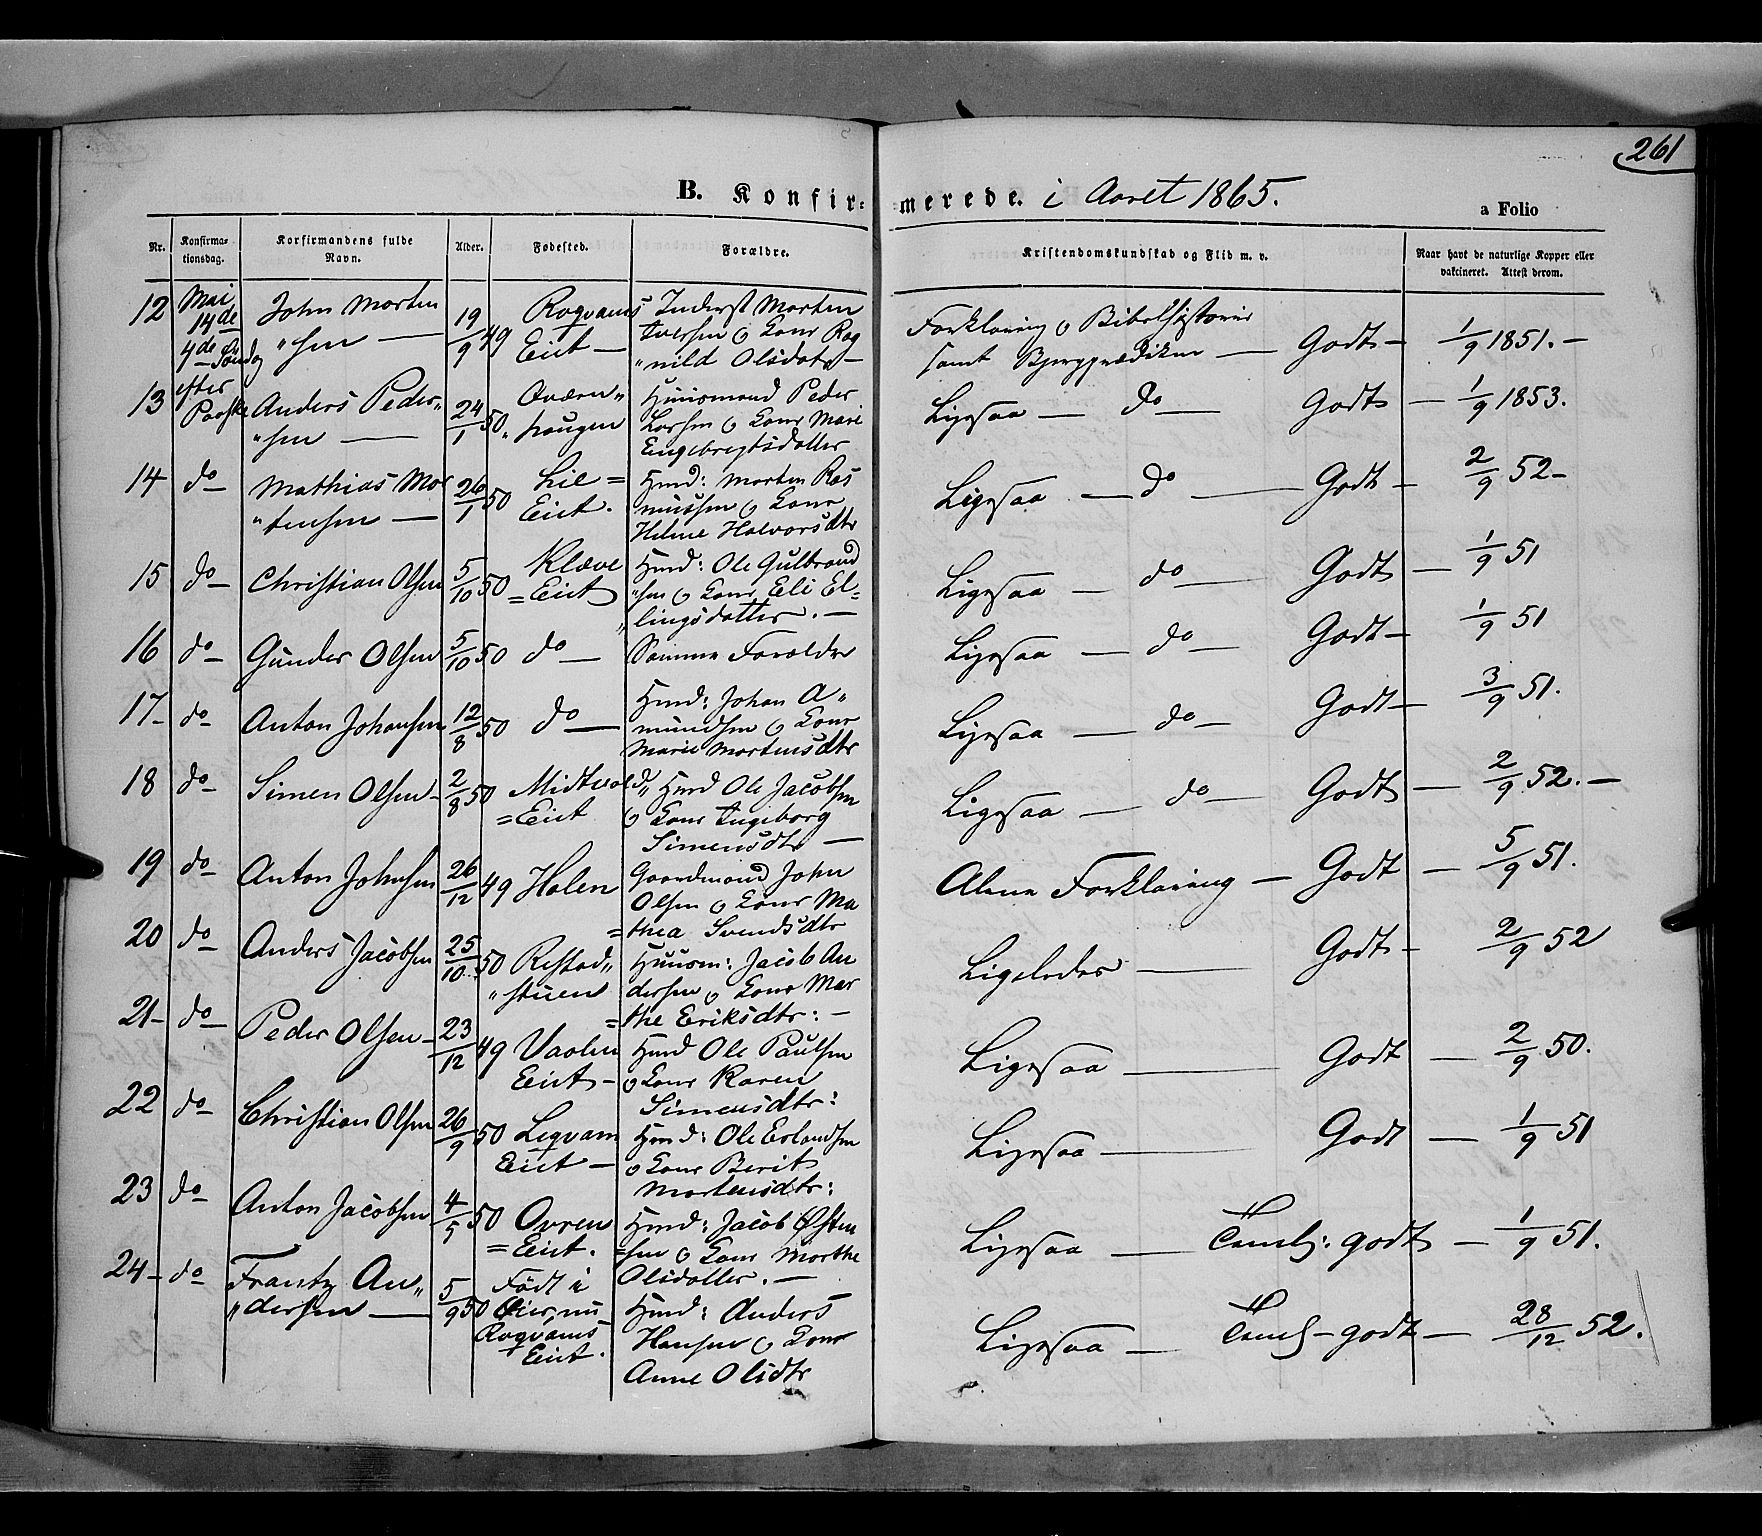 261
B. Konfir-merede. i Aaret 1865.
a Folio
Nr. Konfirma-tionsdag. Konfirmandens fulde Navn. Alder. Fødested. Forældre. Kristendomskundskab og Flid m. v. Naar havt de naturlige Kopper eller vaksineret. Attest derom.
12 Mai 14de 4de Søndag efter Paaske John Morten
"sen — 19/9 49 Roqvams Eiet — Inderst Morten
Iversen o Kone Rag
"nild Olsdatr — Forklaring o Bibelhistorie
samt Bjergprædiken — Godt — 1/9 1851. —
13 Anders Peder„
"sen — 24/1 50 Qværn„
"haugen Huusmand Peder
Larsen o Kone Mari
Engebregtsdatter Ligesaa — do — Godt — 1/9 1853.
14 do — Mathias Mor
"tensen — 26/1 50 Lie =
Eiet. Hmd: Morten Ras
mussen o Kone
Helene Halvorsdtr Ligesaa — do — Godt — 2/9 52 —
15 do — Christian Olsen 5/10 50 Klæve
= Eiet Hmd: Ole Gulbrand
"sen o Kone Eli El-
"lingsdatter. — Ligesaa — do — Godt — 1/9 51
16 do — Gunder Olsen 5/10 50 do — Samme Forældre Ligesaa — do — Godt — 1/9 51
17 — do — Anton Johansen 12/8 50 do — Hmd: Johan A„
mundsen o Kone
Marie Mortensdtr Ligesaa — do — Godt — 3/9 51.
18 do — Simen Olsen — 2/8 50 Midtvold„
= Eiet Hmd Ole Jacobsen
o Kone Ingeborg
Simensdtr — Ligesaa — do — Godt — 2/9 52. —
19 do — Anton Johnsen 26/12 49 Holen Gaardmand John
Olsen o Kone Ma
= thea Svendsdtr Alene Forklaring — Godt — 5/9 51.
20 do — Anders Jacobsen 25/10 50 Restad„
"stuen Huusm: Jacob An
dersen o Kone Mar
= the Eriksdtr: — Ligeledes — Godt — 2/9 52
21 — do — Peder Olsen — 23/12 49 Vaolen
Eiet — Hmd Ole Paulsen
o Kone Karen
Simensdtr: Ligesaa — Godt — 2/9 50.
22 do — Christian Olsen 26/9 50 Leqvam
Eiet — Hmd: Ole Erlandsen
o Kone Berit
Mortensdtr: Ligesaa — Godt — 1/9 51
23 do — Anton Jacobsen 4/5 50 Ovren
= Eiet. Hmd: Jacob Østen
= sen o Kone Marthe
Olsdatter. — Ligesaa — Temlj: godt — 1/9 51.
24 — do Frantz An„
"dersen — 5/9 50 Født i
Øier, nu
Roqvams
Eiet. Hmd: Anders
Hansen o Kone
Anne Olsdtr Ligesaa — Teml — godt — 28/12 52.